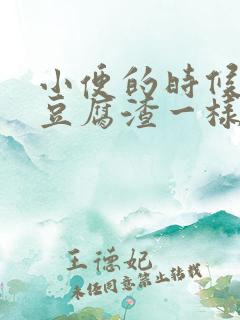 小便的时候
豆腐渣一样
王德妃
未经同意禁止转载